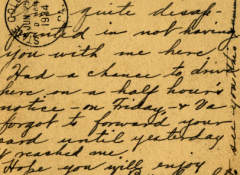 quite disap-
pointed in not having
you with me here
Had a chance to drive
here on a half hour's
notice - on Friday, &
forgot to forward your
card until yesterday
it reached me.
Hope you will enjoy
see you this